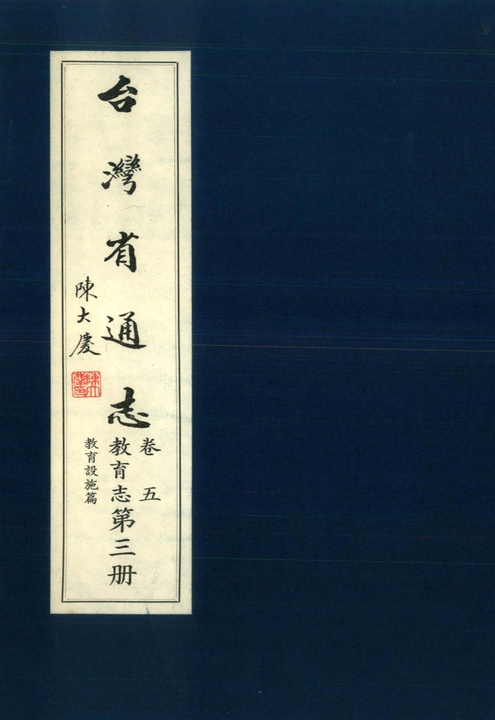 台灣省通志
卷五
教育志第三册
教育設施篇
陳大慶